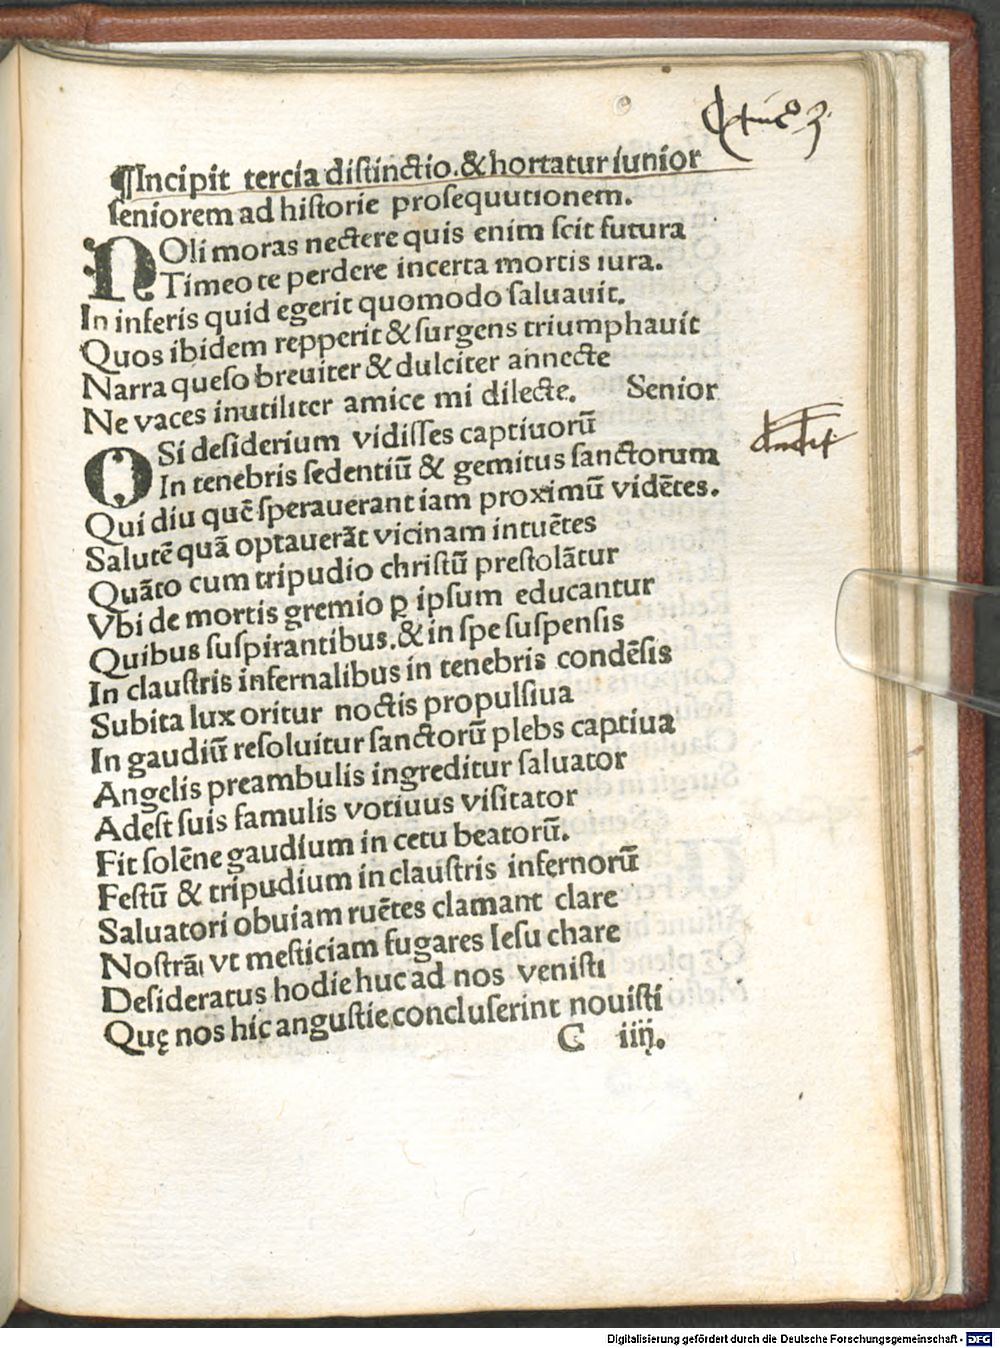 ¶Incipit tercia distinctio.&hortatur iunior
seniorem ad historie prosequutionem.
NOli moras nectere quis enim scit futura
Timeo te perdere incerta mortis iura.
In inferis quid egerit quomodo saluauit.
Quos ibidem repperit & surgens triumphauit
Narra queso breuiter & dulciter annecte
Ne vaces inutiliter amice mi dilecte. Senior
OSi desiderium vidisses captiuorū
In tenebris sedentiū & gemitus sanctorum
Qui diu quē sperauerant iam proximū vidētes.
Salutē quā optauerāt vicinam intuētes
Quāto cum tripudio christū prestolātur
Vbi de mortis gremio ꝑ ipsum educantur
Quibus suspirantibus.& in spe suspensis
In claustris infernalibus in tenebris condēsis
Subita lux oritur noctis propulsiua
In gaudiū resoluitur sanctorū plebs captiua
Angelis preambulis ingreditur saluator
Adest suis famulis votiuus visitator
Fit solēne gaudium in cetu beatorū.
Festū & tripudium in claustris infernorū
Saluatori obuiam ruētes clamant clare
Nostrā vt mesticiam fugares Iesu chare
Desideratus hodie huc ad nos venisti
Quę nos hic angustie concluserint nouisti
C iiij.
Digitalisierung gefördert durch die Deutsche Forschungsgemeinschaft - DFG